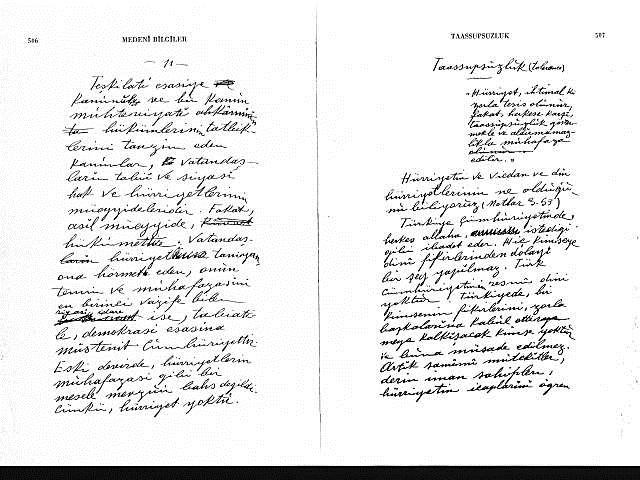 506
MEDENÎ BİLGİLER
— 11 —
Teşkilâtı esasiye
kanunu ve bir kanun
muhteviyatı ahkâmının
hükümlerinin tatbik-
lerini tanzim eden
kanunlar, vatandaş-
ların tabiî ve siyasi
hak ve hürriyetlerinin
müeyyideleridir. Fakat,
asıl müeyyide,
hükümet. Vatandaş-
hürriyet tanıyan,
ona hürmet eden, onun
temin ve muhafazasını
en birinci vazife bilen
siyasî idare
ise, tabiatı-
le, demokrasi esasına
müstenit Cümhuriyettir.
Eski devirde, hürriyetlerin
muhafazası gibi bir
mesele mevzuu bahs değildi.
Çünkü, hürriyet yoktu.
TAASSUPSUZLUK
507
Taassupsuzluk (tolerance)
"Hürriyet, ihtimal ki
zorla tesis olunur,
fakat, herkese karşı,
taassupsuzluk göster-
mekle ve aldırmamaz-
lıkla muhafaza
edilir."
Hürriyetin ve vicdan ve din
hürriyetlerinin ne olduğu-
nu biliyoruz (Notlar S. 53)
Türkiye Cümhuriyetinde,
herkes allaha, istediği
gibi ibadet eder. Hiç kimseye
dinî fikirlerinden dolayı
bir şey yapılmaz. Türk
Cümhuriyetinin resmî dini
yoktur. Türkiyede, bir
kimsenin fikirlerini, zorla
başkalarına kabul ettirme-
meye kalkışacak kimse yoktur
ve buna müsade edilmez.
Artık samimî mutekitler,
derin iman sahipleri,
hürriyetin icaplarını öğren